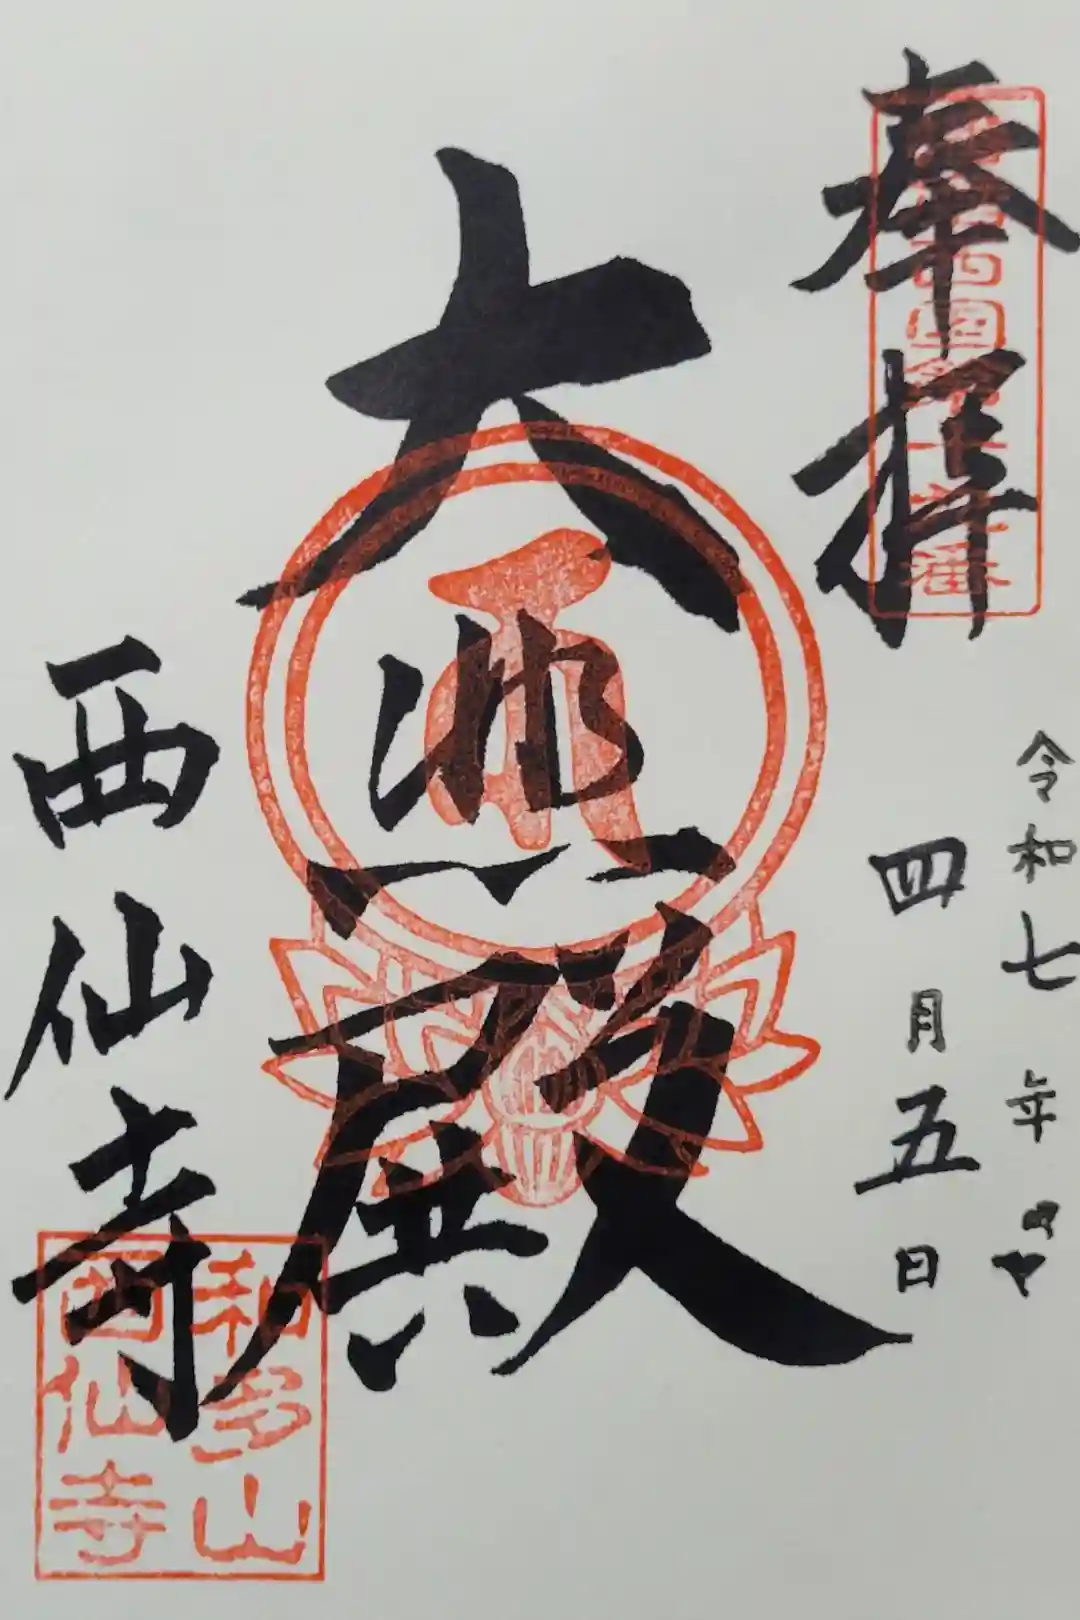 奉拝
令和七年
四月五日
大悲殿
西仙寺
和多山
西仙寺